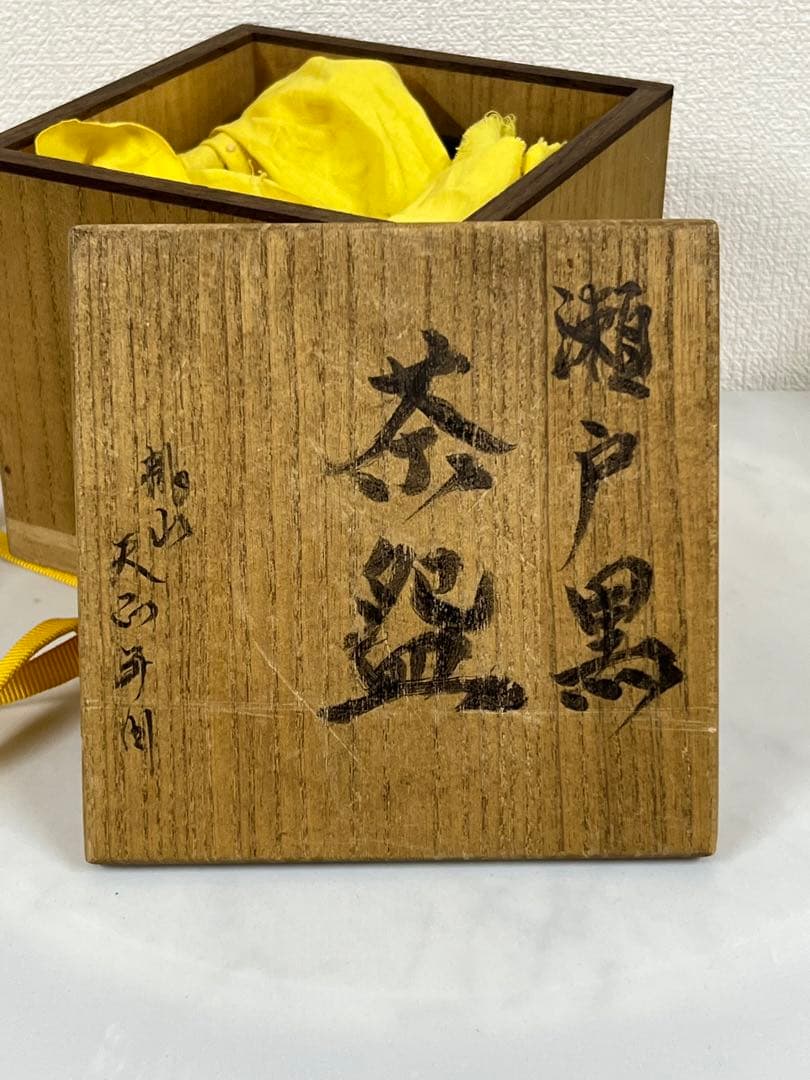 瀬戸黒
茶盌
桃山
天正年間